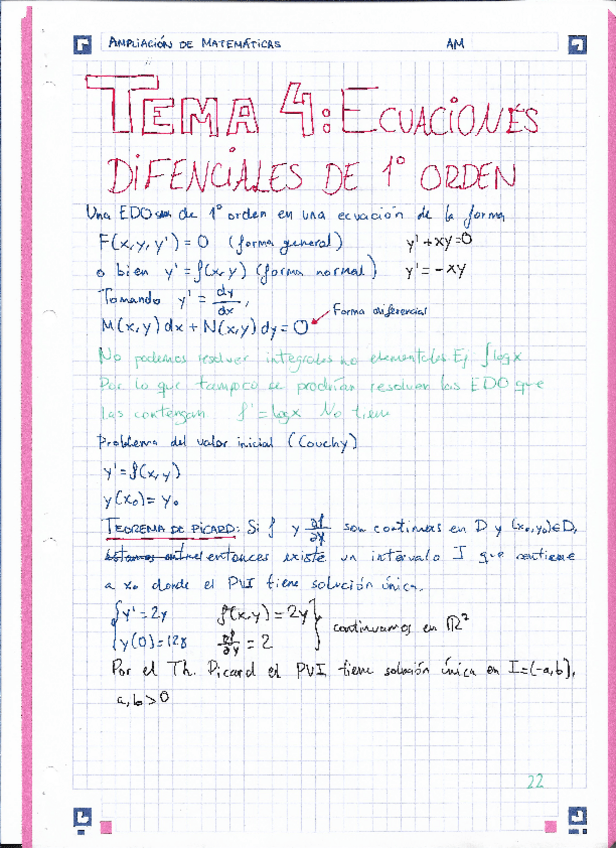 AMPLIACIÓN DE MATEMÁTICAS AM
TEMA 4: ECUACIONES
DIFENCIALES DE 1º ORDEN
Una EDO de 1º orden en una ecuación de la forma
F(x,y,y') = 0 (forma general) y'+xy=0
o bien y' = f(x,y) (forma normal) y' = -xy
Tomando y' = dy/dx,
M(x,y)dx + N(x,y)dy = 0 Forma diferencial
No podemos resolver integrales no elementales Ej ∫logx
Por lo que tampoco se prodrían resolver las EDO que
las contengan f' = logx No tiene
Problema del valor inicial (Couchy)
y' = f(x,y)
y(x₀) = y₀
TEOREMA DE PICARD: Si f y ∂f/∂y son continuas en D y (x₀,y₀)∈D,
entonces existe un intervalo I que contiene
a x₀ donde el PVI tiene solución única.
y' = 2y f(x,y) = 2y
y(0) = 128 ∂f/∂y = 2 continuamos en ℝ²
Por el Th. Picard el PVI tiene solución única en I=(-a,b),
a,b > 0
22